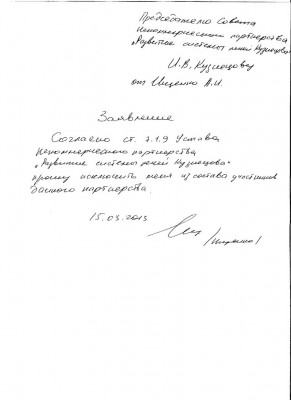 Председателю Совета
Некоммерческого партнерства
„Развитие системы линей Кузнецова"
И.В. Кузнецову
от Ищенко А.И.
Заявление
Согласно ст. 7.1.9 Устава
Некоммерческого партнерства
„Развитие системы линей Кузнецова"
прошу исключить меня из состава участников
данного партнерства.
15.03.2013
/Ищенко/